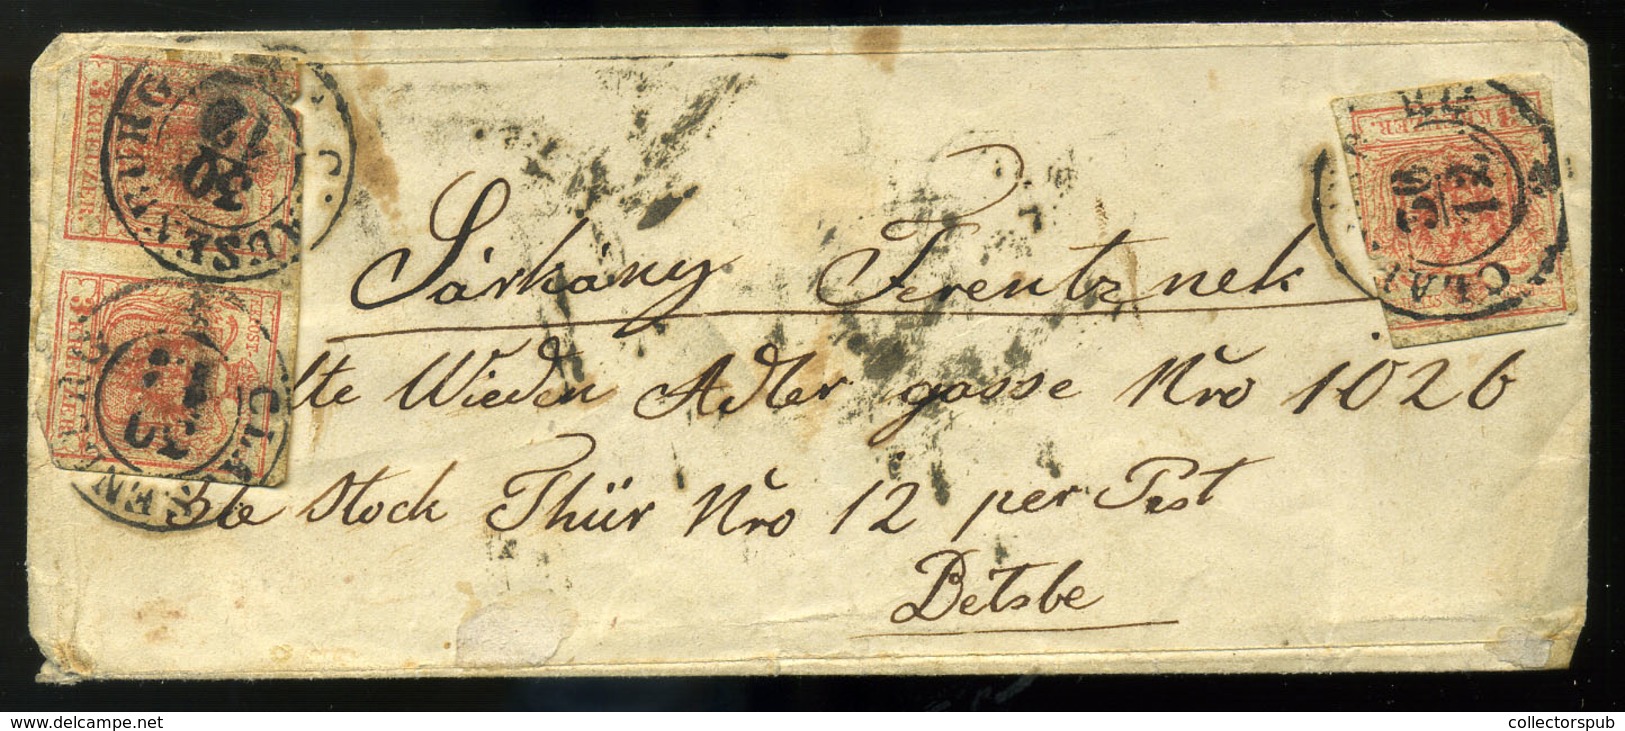 Sárkány Ferentznek
lte Wieden Adler gasse Nro 1026
3te Stock Thür Nro 12 per Pest
Betsbe
3 KREUZER
3 KREUZER
3 KREUZER
30
12
30
12
30
www.delcampe.net
collectorspub